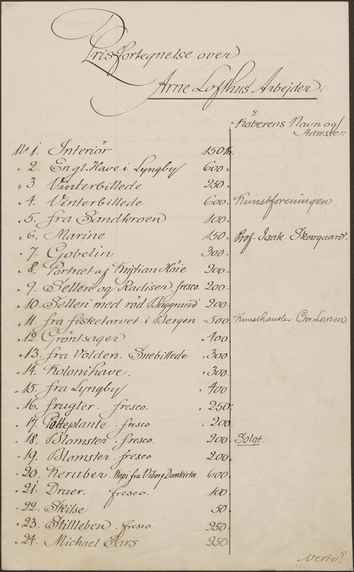 Prisfortegnelse over
Arne Lofthus Arbejder.
Køberens Navn og
Adresse.
No 1. Interiør 450 Kr.
" 2. Engl. Have i Lyngby 600.
" 3. Vinterbillede 250.
" 4. Vinterbillede 600. Kunstforeningen
" 5. fra Sandkroen 100.
" 6. Marine 150. Prof. Isak Skovgaard.
" 7. Gobelin 300.
" 8. Portræt af Kristian Høie 200.
" 9. Selleri og Radiser fresco 200.
" 10. Selleri med rød Baggrund 200.
" 11. fra fisketorvet i Bergen 500. Kunsthandler Chr Larsen
" 12. Grøntsager 400.
" 13. fra Volden. Snebillede 300.
" 14. Kolonihave. 300.
" 15. fra Lyngby 400
" 16. frugter fresco. 250.
" 17. Potteplante fresco 200
" 18. Blomster fresco. 200 Solgt.
" 19. Blomster fresco 200.
" 20. Keruber 600.
" 21. Druer. fresco. 100
" 22. Skitse 50.
" 23. Stillleben. fresco 250.
" 24. Michael Sars 250
verte!